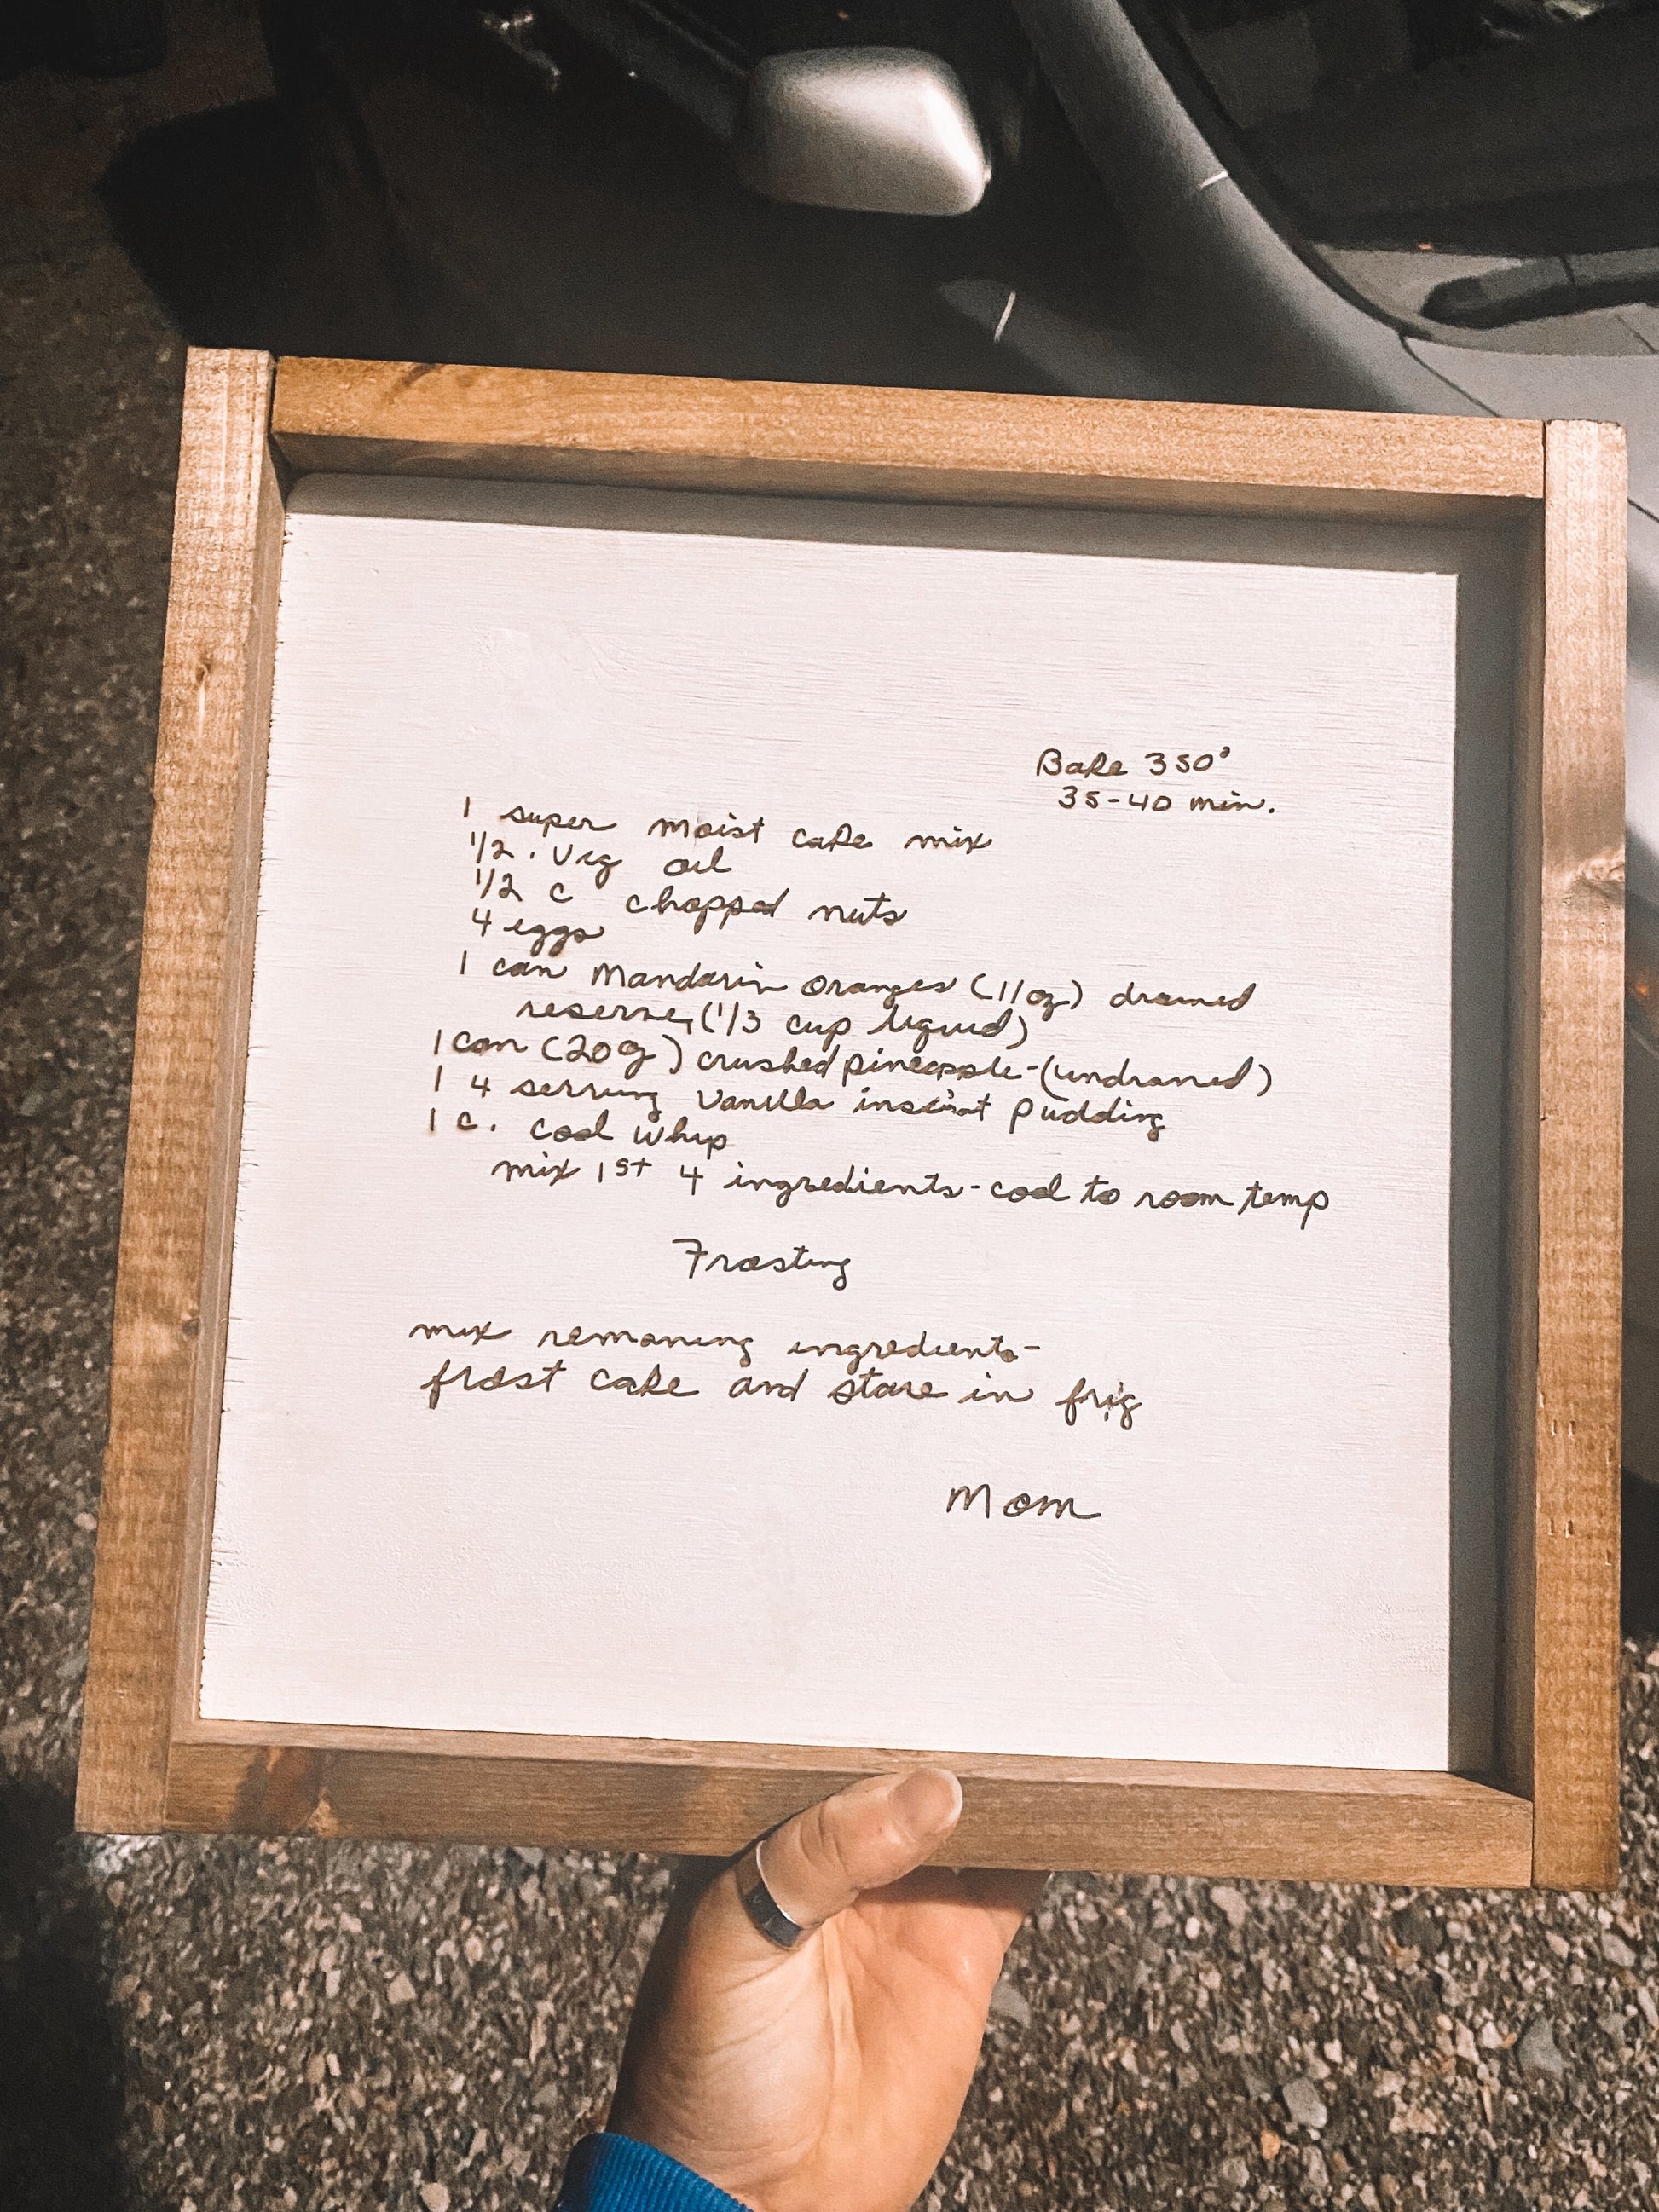 Bake 350°
35-40 min.
1 super moist cake mix
1/2 . Veg oil
1/2 c chopped nuts
4 eggs
1 can Mandarin oranges (11oz) drained
reserve, (1/3 cup liquid)
1 can (20g) crushed pineapple-(undrained)
1 4 serving Vanilla instant pudding
1 c. cool whip
mix 1st 4 ingredients-cool to room temp
Frosting
mix remaning ingredients-
frost cake and store in frig
Mom